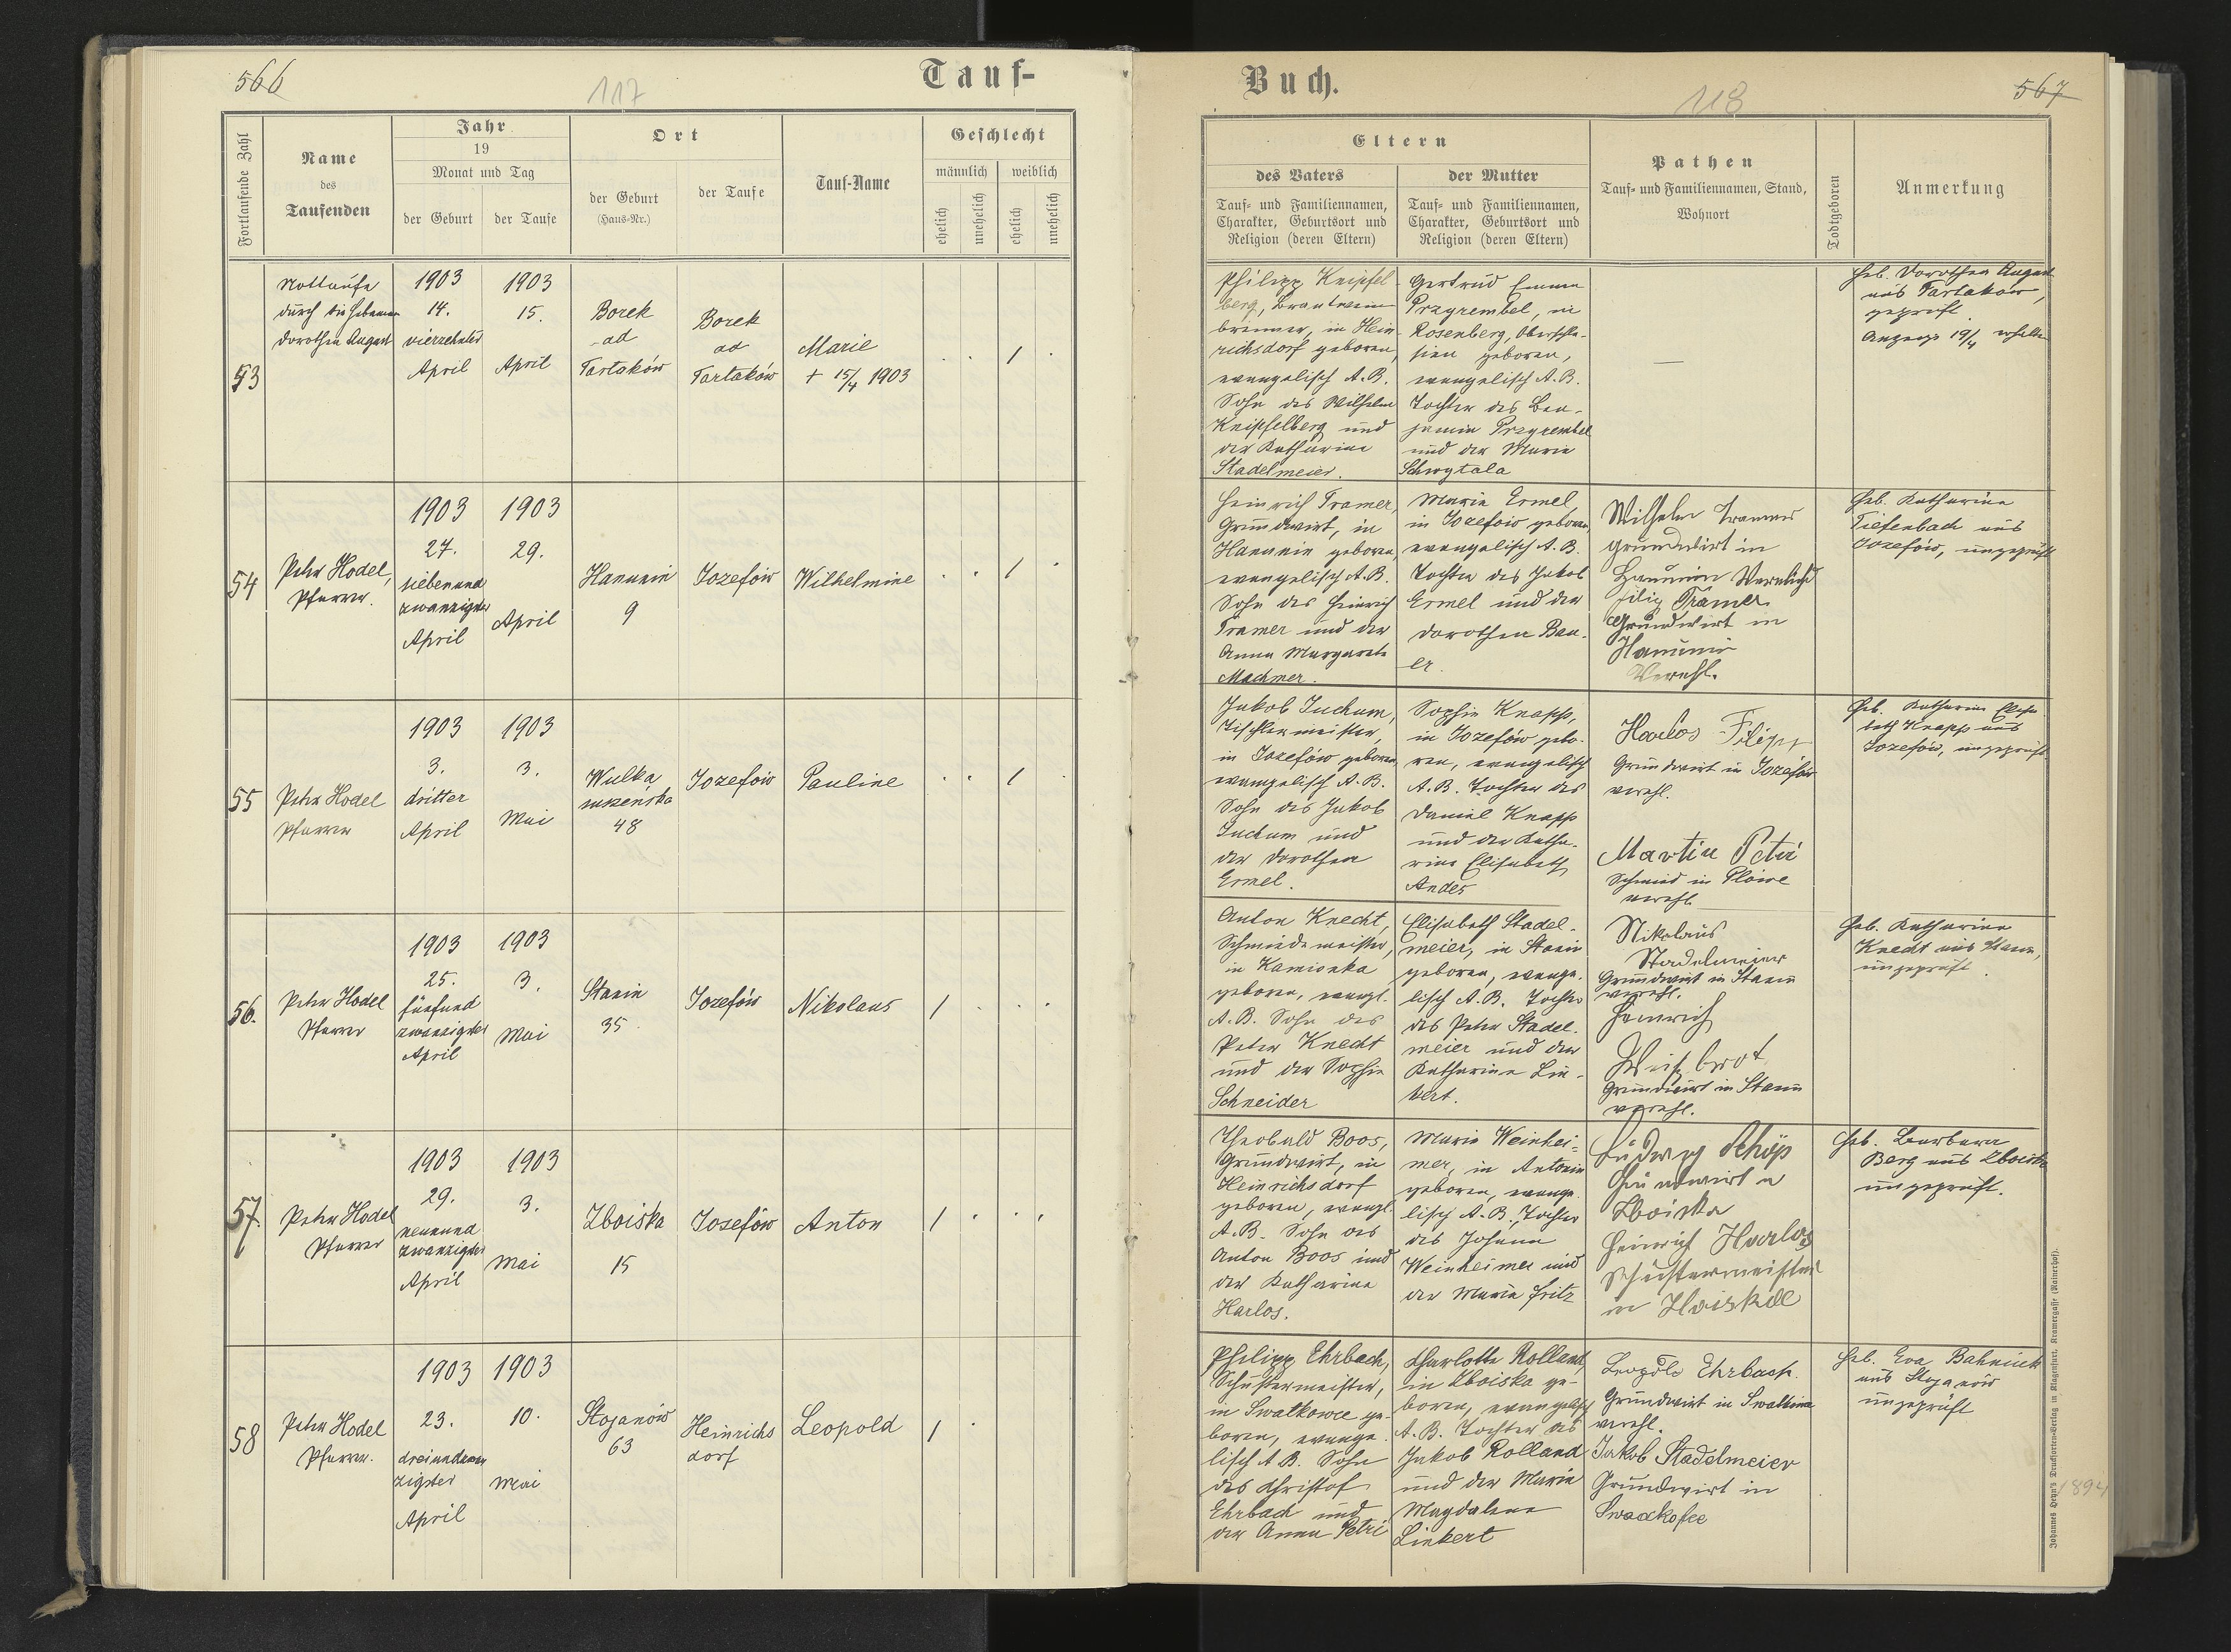 566
117
Tauf-
Fortlaufende Zahl
Name
des
Taufenden
Jahr
19
Monat und Tag
der Geburt
der Taufe
Ort
der Geburt
(Haus-Nr.)
der Taufe
Tauf-Name
Geschlecht
männlich
weiblich
ehelich
unehelich
ehelich
unehelich
53
Nottaufe
durch die Hebamme
Dorothea August
1903
14.
vierzehnter
April
1903
15.
April
Borek
ad
Tartaków
Borek
ad
Tartaków
Marie
+ 15/4 1903
1
54
Peter Hodel,
Pfarrer.
1903
27.
siebenund
zwanzigster
April
1903
29.
April
Hanunin
9
Jozefów
Wilhelmine
1
55
Peter Hodel
Pfarrer
1903
3.
dritter
April
1903
3.
Mai
Wulka
suszeńska
48
Jozefów
Pauline
1
56.
Peter Hodel
Pfarrer
1903
25.
fünfund
zwanzigster
April
1903
3.
Mai
Stanin
35
Jozefów
Nikolaus
1
57.
Peter Hodel
Pfarrer
1903
29.
neunund
zwanzigster
April
1903
3.
Mai
Zboiska
15
Josefów
Anton
1
58
Peter Hodel
Pfarrer.
1903
23.
dreiundzwan
zigster
April
1903
10.
Mai
Stojanów
63
Heinrichs
dorf
Leopold
1
Buch.
118
567
Eltern
des Vaters
Tauf- und Familiennamen,
Charakter, Geburtsort und
Religion (deren Eltern)
der Mutter
Tauf- und Familiennamen,
Charakter, Geburtsort und
Religion (deren Eltern)
Pathen
Tauf- und Familiennamen, Stand,
Wohnort
Todtgeboren
Anmerkung
Philipp Knipfel
berg, Brantwein
brenner, in Hein
richsdorf geboren,
evangelisch A. B.
Sohn des Wilhelm
Knipfelberg und
der Katharina
Stadelmeier.
Gertrud Emma
Przyrembel, in
Rosenberg, Oberschle-
sien geboren,
evangelisch A. B.
Tochter des Ben-
jamin Przyrembel
und der Marie
Schwytala
—
Heb. Dorothea August
aus Tartakow,
geprüft.
Anzeige 19/4 erhalten
Heinrich Tramer,
Grundwirt, in
Hanunin geboren,
evangelisch A. B.
Sohn des Heinrich
Tramer und der
Anna Margareta
Machmer.
Maria Ermel,
in Jozefów geboren
evangelisch A. B.
Tochter des Jakob
Ermel und der
Dorothea Bau-
er.
Wilhelm Tramer
Grundwirt in
Hanunin
Tramer
Grundwirt in
Hanunin
Verehl.
Heb. Katharina
Tiefenbach aus
Jozefów, ungeprüft
Jakob Juchum,
Tischlermeister,
in Jozefów geboren
evangelisch A. B.
Sohn des Jakob
Juchum und
der Dorothea
Ermel.
Sophie Knapp,
in Jozefów gebo-
ren, evangelisch
A. B. Tochter des
Daniel Knapp
und der Katha-
rina Elisabeth
Andes
Harlos Filipp
Grundwirt in Jozefów
verehl.
Martin Petri
Schmied in Płowe
verehl.
Heb. Katharina Elisa
beth Knapp aus
Jozefów, ungeprüft.
Anton Knecht,
Schmiedemeister,
in Kamionka
geboren, evangl.
A. B. Sohn des
Peter Knecht
und der Sophie
Schneider
Elisabeth Stadel-
meier, in Stanin
geboren, evange-
lisch A. B. Tochter
des Peter Stadel-
meier und der
Katharina Lin-
kert.
Nikolaus
Stadelmeier
Grundwirt in Stanin
verehl.
Heinrich
Weissbrot
Grundwirt in Stanin
verehl.
Heb. Katharina
Knecht aus Stanin,
ungeprüft.
Theobald Boos,
Grundwirt, in
Heinrichsdorf
geboren, evangl.
A. B. Sohn des
Anton Boos und
der Katharina
Harlos.
Maria Weinhei-
mer, in Antonin
geboren, evange-
lisch A. B., Tochter
des Johann
Weinheimer und
der Maria Fritz
Ludwig Schöp
Grundwirt in
Zboiska
Heinrich Harlos
Schustermeister
in
Heb. Barbara
Berg aus Zboiska
ungeprüft.
Philipp Ehrbach,
Schustermeister,
in Swatkowce ge-
boren, evange-
lisch A. B. Sohn
des Christof
Ehrbach und
der Anna Petri
Charlotte Rolland,
in Zboiska ge-
boren, evangelisch
A. B. Tochter des
Jakob Rolland
und der Maria
Magdalena
Linkert
Leopold Ehrbach.
Grundwirt in
verehl.
Jakob Stadelmeier
Grundwirt in
Heb. Eva Bahniuk
aus Stojanów
ungeprüft
Johannes Heyn's Drucksorten-Verlag in Klagenfurt, Kramergasse (Rainerhof).
1894